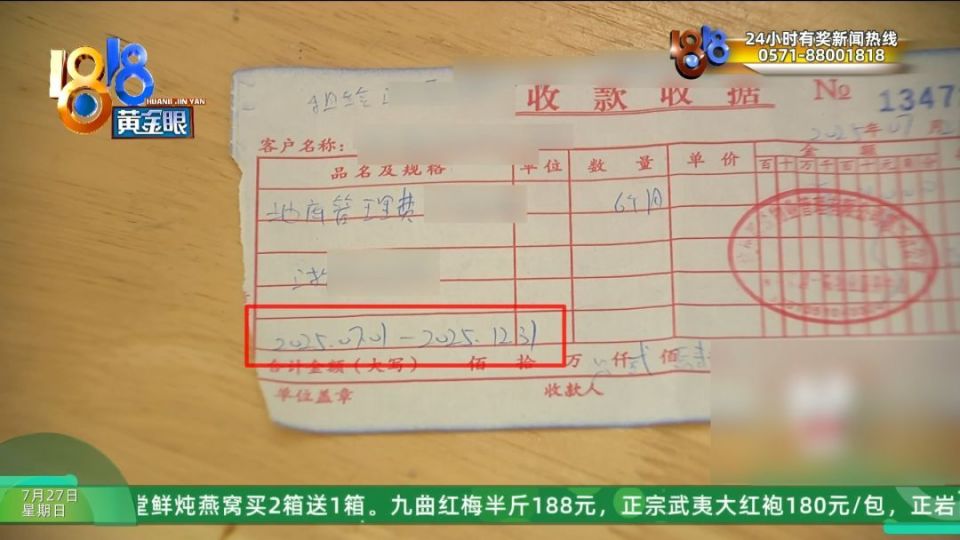 1818
HUANG JIN YAN
黄金眼
1818
24小时有奖新闻热线
0571-88001818
收款收据 № 1347
2025年07月
客户名称：
品名及规格 单位 数量 单价 金额
百十万千百十元角分
地库管理费 6个月
2025.07.01-2025.12.31
合计金额（大写） 佰 拾 万 仟 贰 佰
单位盖章 收款人
7月27日
星期日
堂鲜炖燕窝买2箱送1箱。九曲红梅半斤188元，正宗武夷大红袍180元/包，正岩